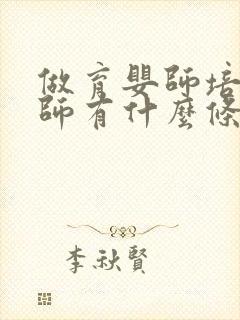 做育嬰師培
師有什麼條
李秋賢